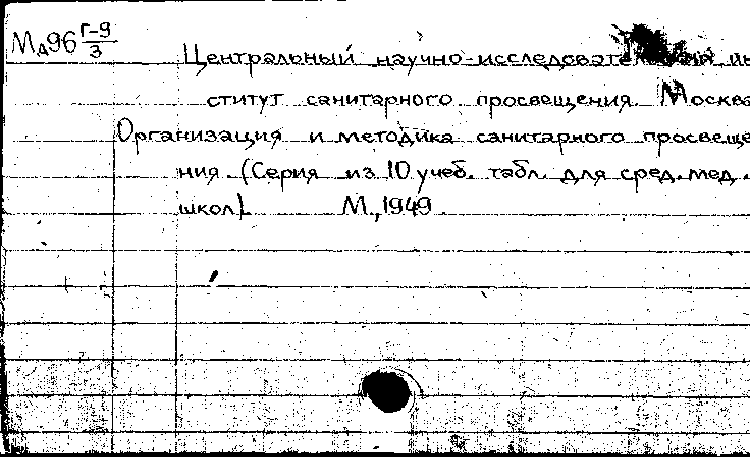 МА96 Г-9/3
Центральный научно-исследовате ин
ститут санитарного просвещения. Москва
Организация и методика санитарного просвеще
ния. (Серия из 10 учеб. табл. для сред. мед.
школ). М., 1949.